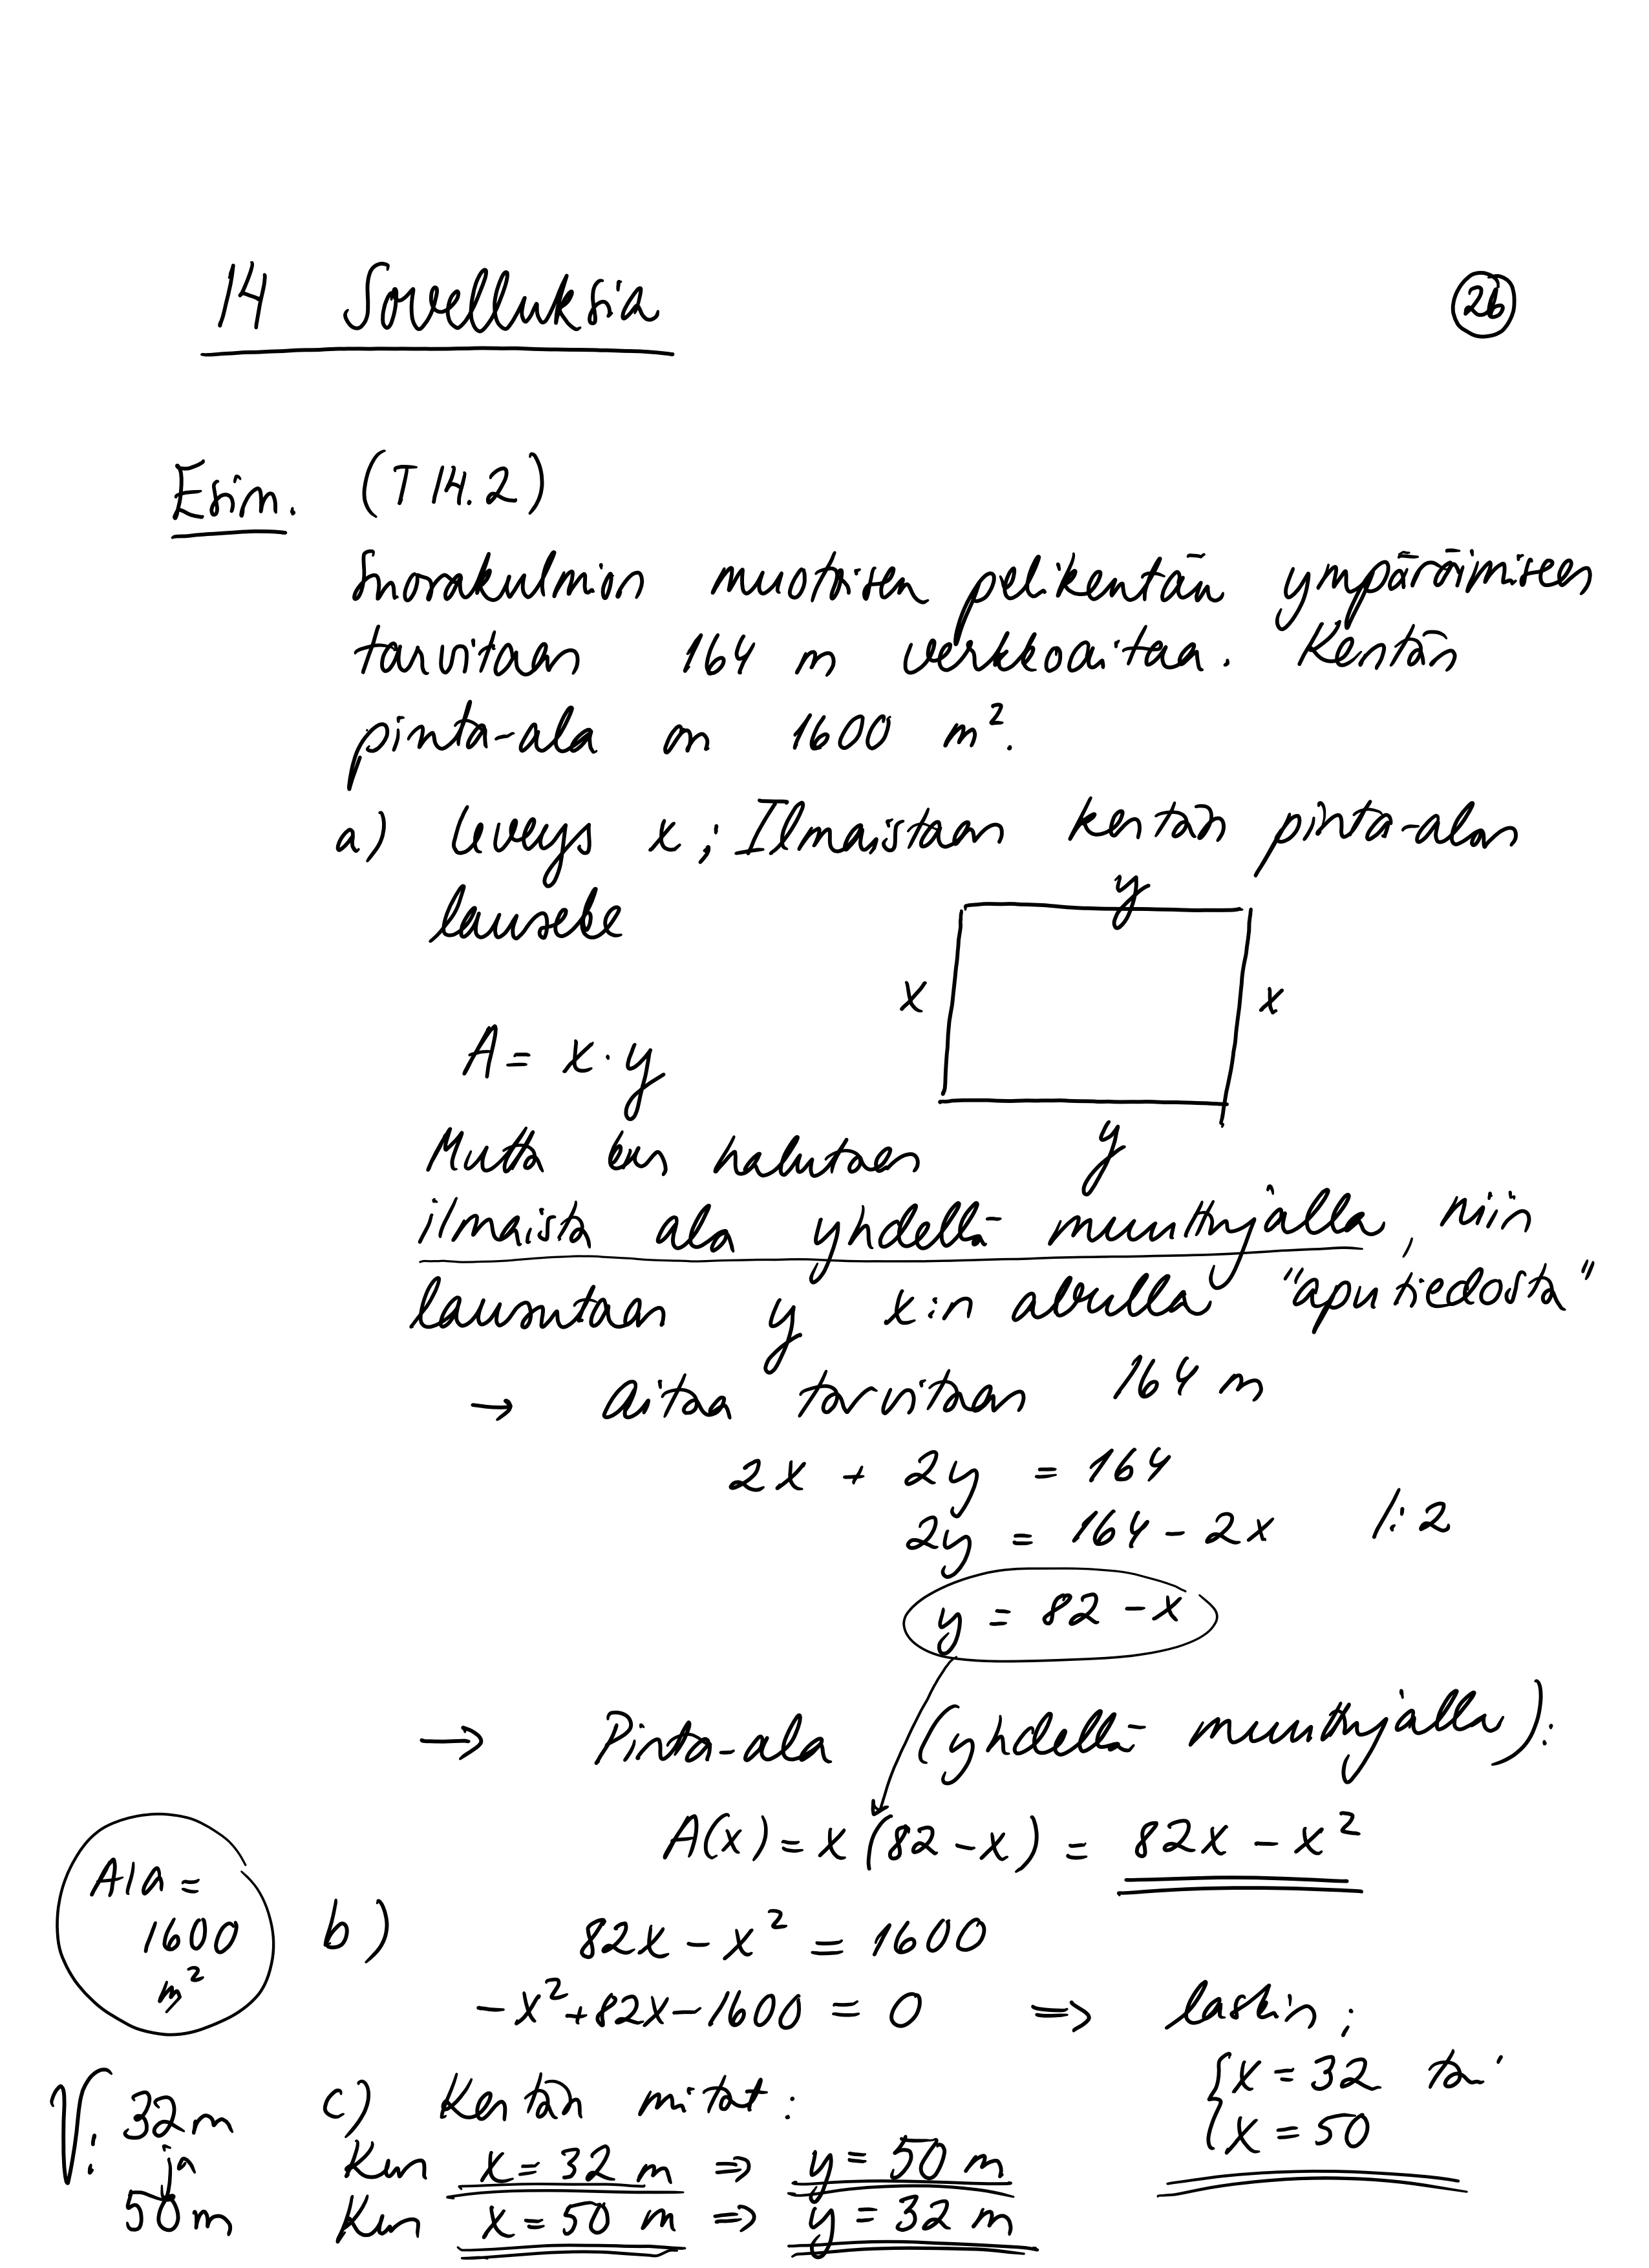 14 Sovelluksia
26
Esim. (T 14.2)
Suorakulmion muotoisen pelikentän ympäröimiseen
tarvitaan 164 m verkkoaitaa. Kentän
pinta-ala on 1600 m².
a) Leveys x ; Ilmaistaan kentän pinta-alan
lauseke
y
x
x
A = x · y
y
Mutta kun halutaan
ilmaista ala yhdellä muuttujalla, niin
lausutaan y x:n avulla "aputiedosta"
→ aitaa tarvitaan 164 m
2x + 2y = 164
2y = 164 - 2x /: 2
y = 82 - x
→ Pinta-ala (yhdellä muuttujalla):
A(x) = x (82 - x) = 82x - x²
Ala =
1600
m²
b) 82x - x² = 1600
-x² + 82x - 1600 = 0 ⇒ laskin ;
{ x = 32 tai
x = 50
c) Kentän mitat :
Kun x = 32 m ⇒ y = 50 m
Kun x = 50 m ⇒ y = 32 m
V: 32 m
ja
50 m